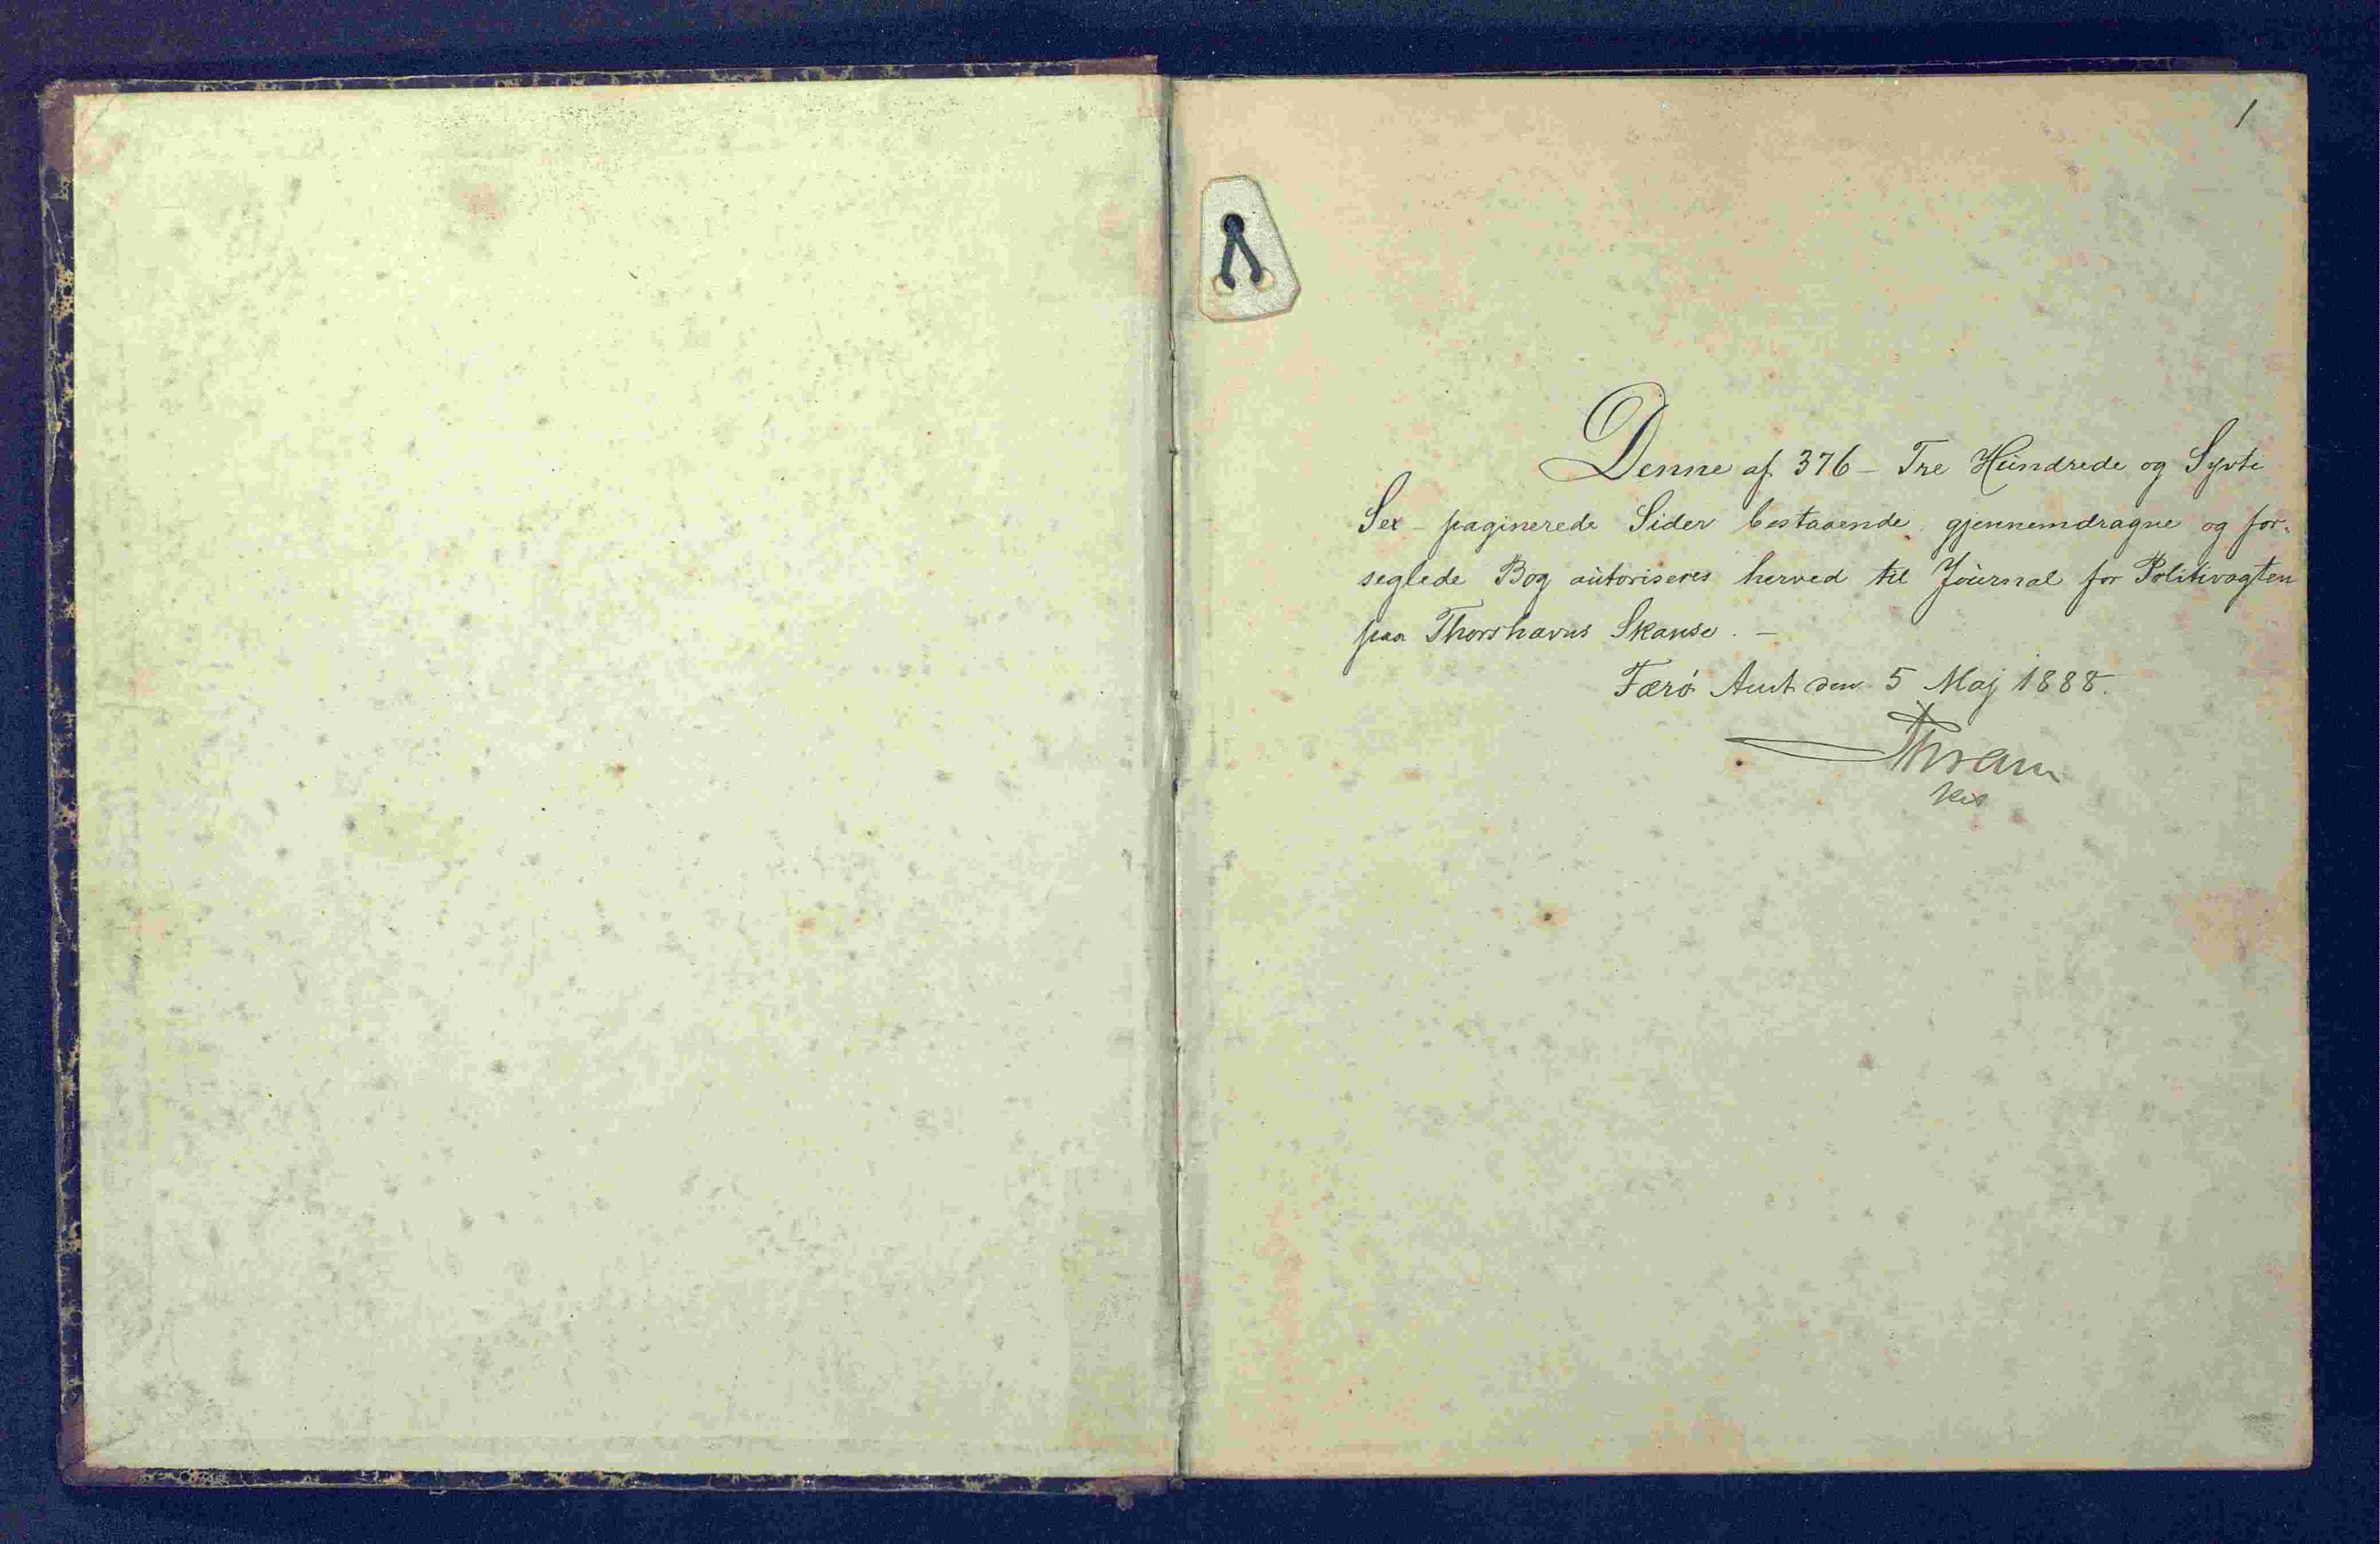 1
Denne af 376 - Tre Hundrede og Syvti
Sex - paginerede Sider bestaaende gjennemdragne og for-
seglede Bog autoriseres herved til Journal for Politivagten
paa Thorshavns Skanse. -
Færø Amt den 5 Maj 1888.